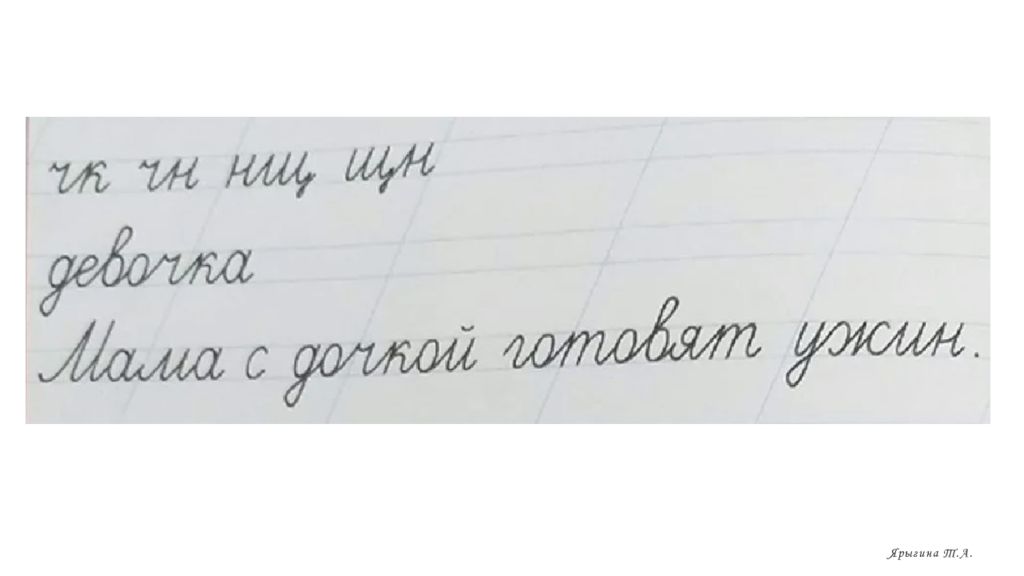 чк чн нщ щн
девочка
Мама с дочкой готовят ужин.
Ярыгина Т.А.